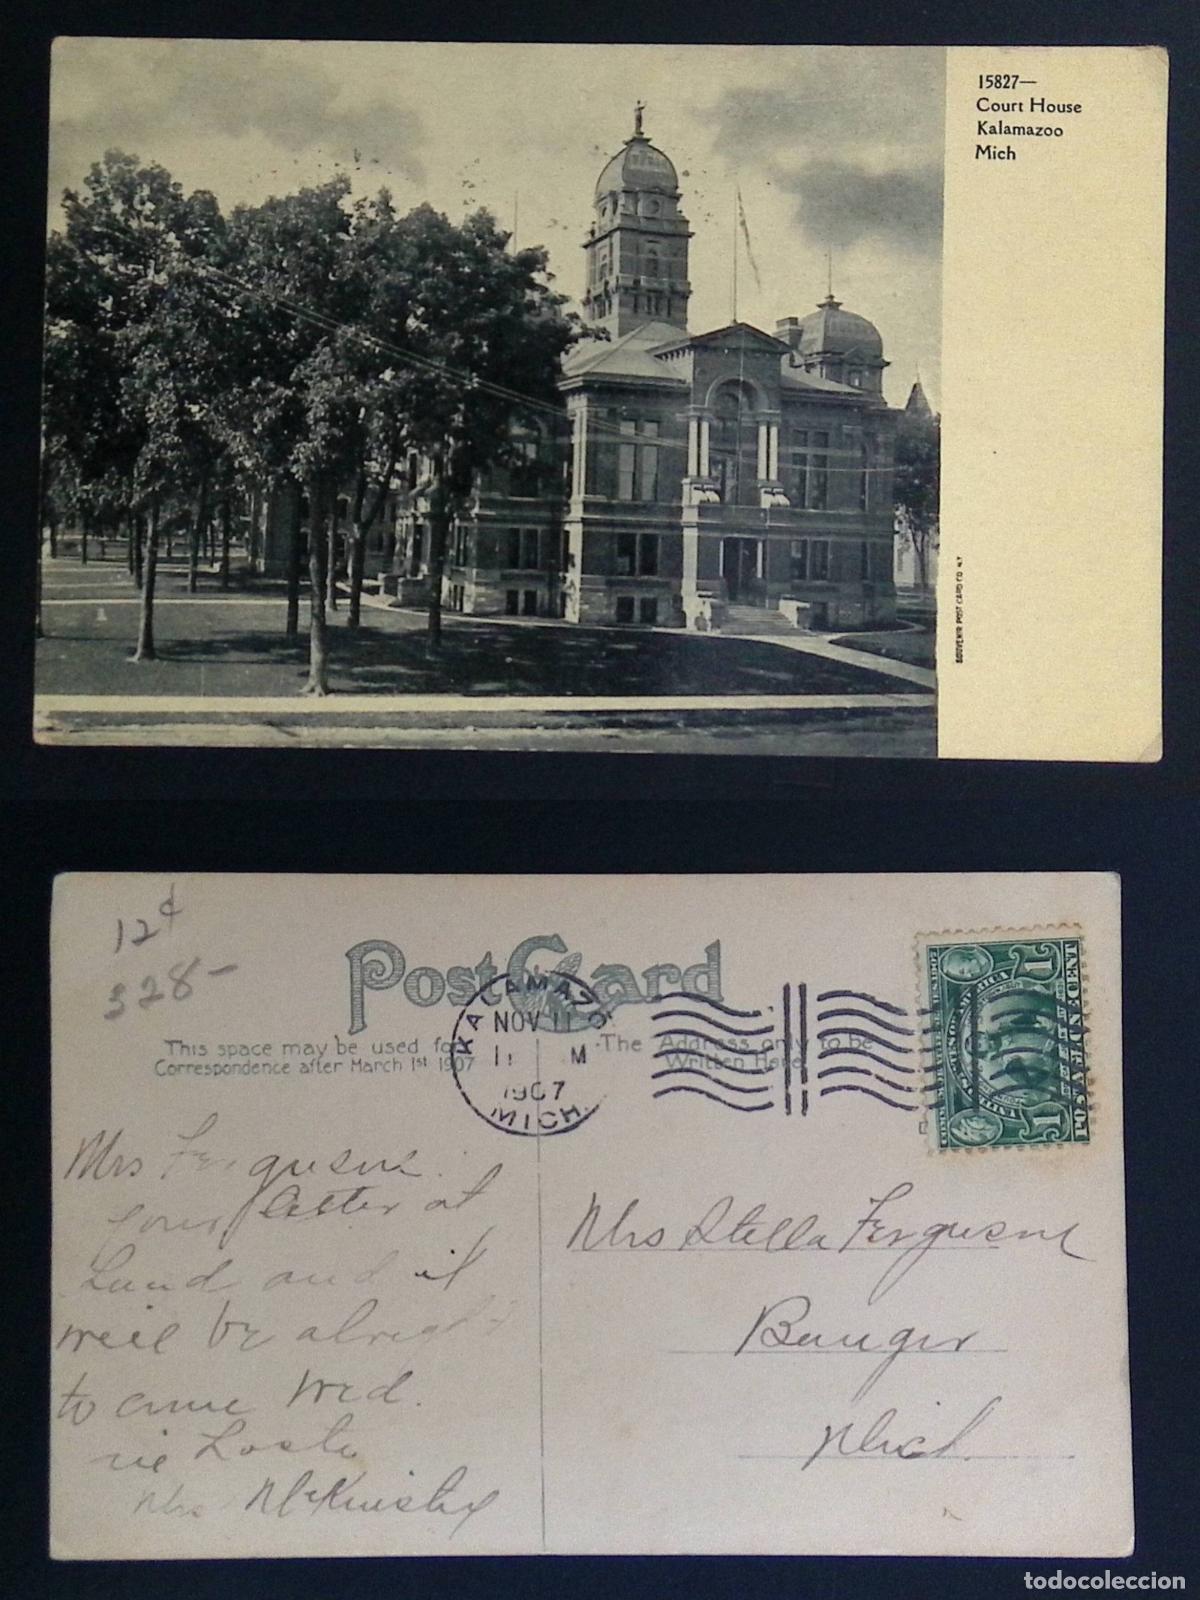 15827—
Court House
Kalamazoo
Mich
SOUVENIR POST CARD CO. N.Y.
12¢
328-
Post Card
This space may be used for
Correspondence after March 1st 1907
The Address only to be
Written Here
KALAMAZOO
NOV 11
11 M
1907
MICH.
1
UNITED STATES OF AMERICA
1
ONE CENT
POSTAGE
Mrs Ferguson
your letter at
hand and it
will be alright
to come Wed.
Mrs McKinstry
Mrs Stella Ferguson
Bangor
Mich.
todocoleccion